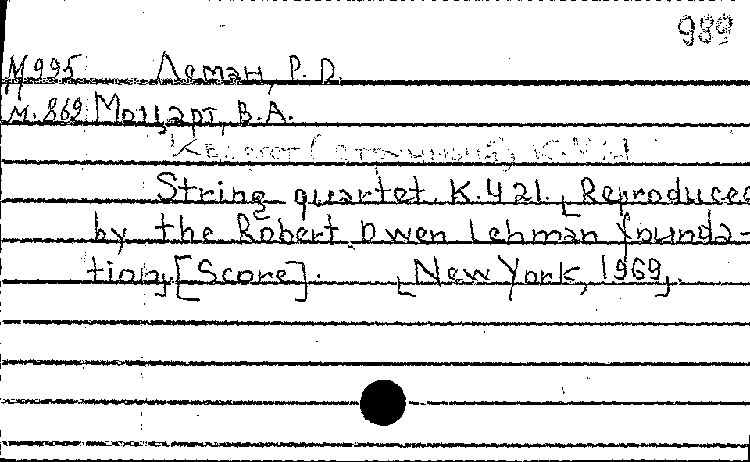 989
М995 Леман, Р. D.
М.869 Моцарт, В.А.
Квартет (струнный) К.421
String quartet, K.421. [Reproduced
by the Robert Owen Lehman founda-
tion] [Score]. [New York, 1969].